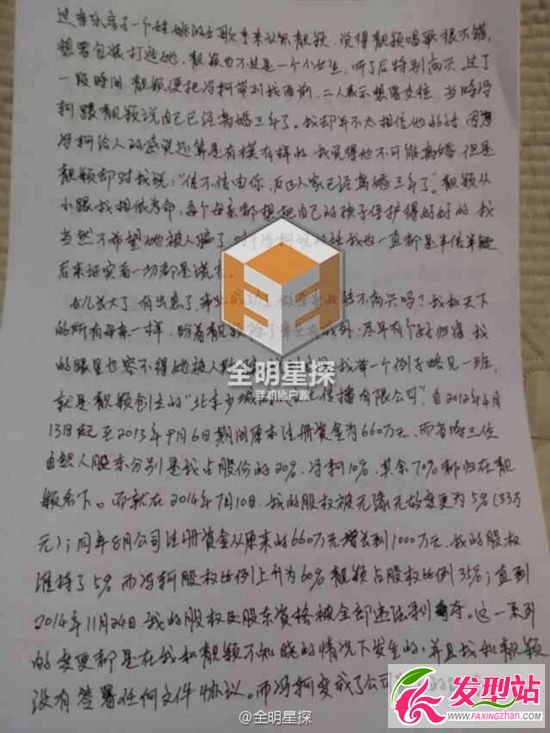 一个
歌手来认识靓颖，说得靓颖唱歌很不错，
想要包装打造她，靓颖也不过是一个小女生，听了后特别高兴，过了
一段时间靓颖便把冯柯带到我面前，二人表示想要交往，当时冯
柯跟靓颖说自己已经离婚三年了。我却并不太相信他的话，因为
冯柯给人的感觉还算是有模有样的，我觉得他不可能离婚，但是
靓颖却对我说："信不信由你，反正人家已经离婚三年了"。靓颖从
小跟我相依为命，每个母亲都想把自己的孩子保护得好好的，我
当然不希望她被人骗了，我也一直都是半信半疑
后来证实着一切都是谎言。
女儿长大了，有出息了，不高兴吗？我和天下
的所有母亲一样，盼着靓颖尽早有个好归宿，我
的眼里也容不得她被人欺 我举一个例子略见一斑，
就是靓颖创立的"北京少城 传播有限公司"自2012年4月
13日起至2013年9月6日期间原本注册资金为660万元，而当时三位
自然人股东分别是我占股份的20%，冯柯10%，其余70%都归在靓
颖名下。而就在2014年7月10日，我的股权被无缘无故变更为5%（33万
元）；同年8月公司注册资金从原来的660万元增长到1000万元，我的股权
维持了5%而冯轲股权比例上升为60%靓颖占股权比例35%；直到
2014年11月24日我的股权及股东资格被全部违法剥夺。这一系列
的变更都是在我和靓颖不知晓的情况下发生的，并且我和靓颖
没有签署任何文件协议。而冯柯变成了公司
全明星探
寻和地户源
@全明星探
发型站
WWW.FAXINGZHAN.COM